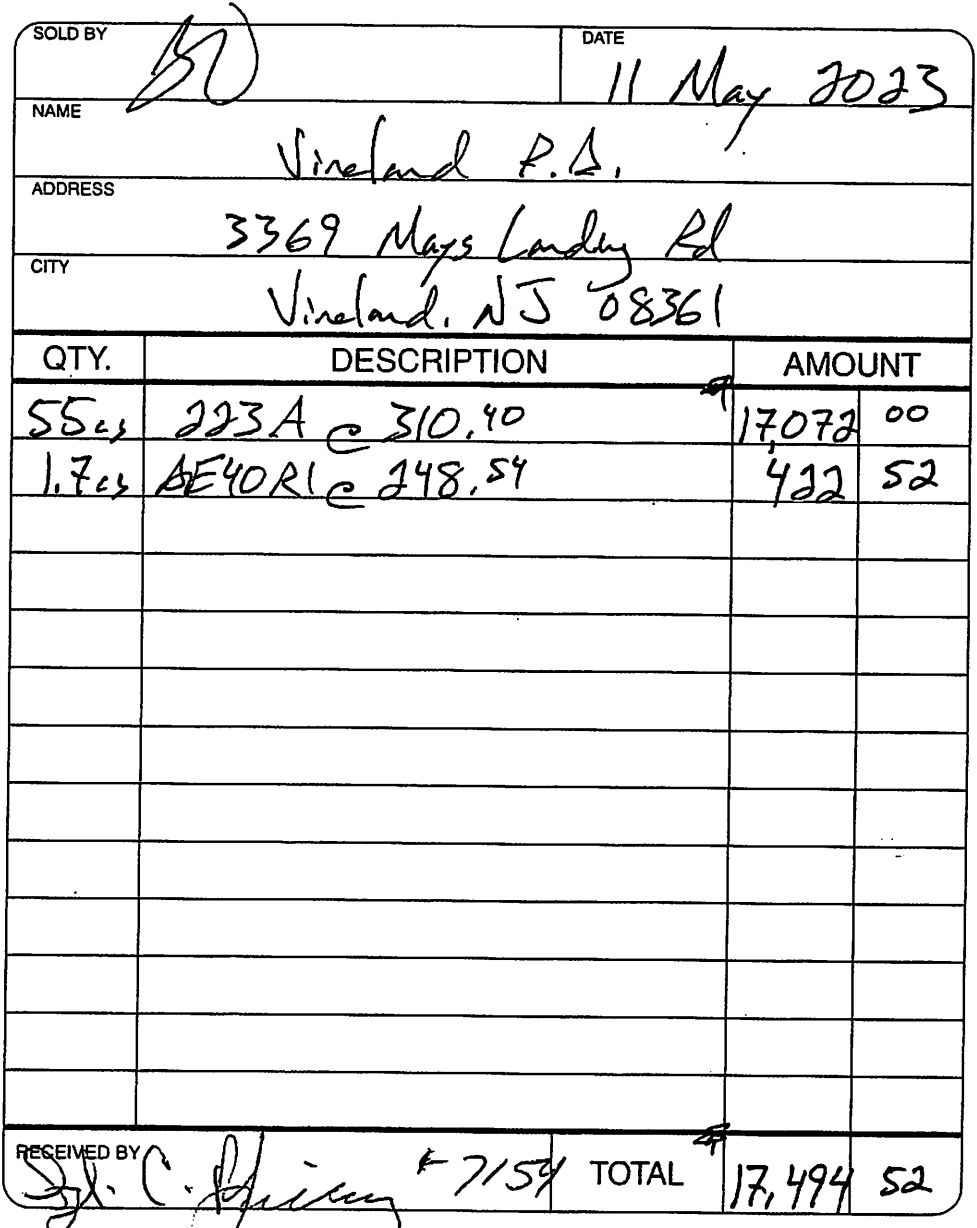 SOLD BY
DATE
11 May 2023
NAME
Vineland P.D.
ADDRESS
3369 Mays Landing Rd
CITY
Vineland, NJ 08361
QTY. DESCRIPTION AMOUNT
55cs 223A @ 310.40 $17,072 00
1.7cs AE40R1 @ 248.54 422 52
RECEIVED BY
C. #7154 TOTAL $17,494 52